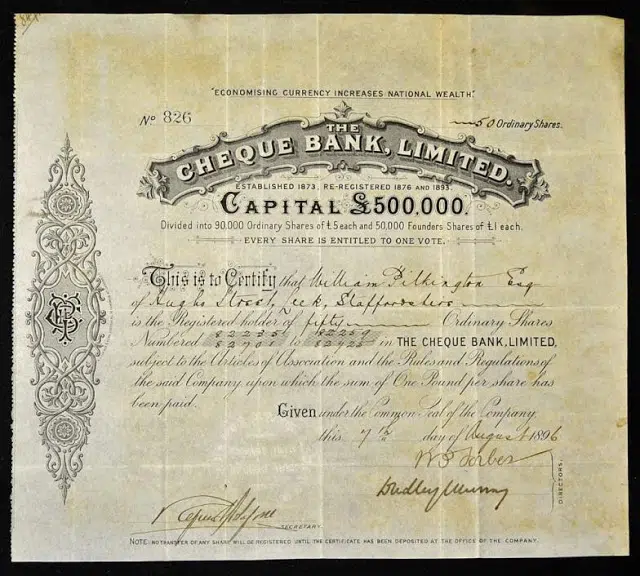 "ECONOMISING CURRENCY INCREASES NATIONAL WEALTH."
No 826
50 Ordinary Shares.
THE
CHEQUE BANK, LIMITED.
ESTABLISHED 1873, RE-REGISTERED 1876 AND 1893.
CAPITAL £500,000.
Divided into 90,000 Ordinary Shares of £5 each and 50,000 Founders Shares of £1 each.
EVERY SHARE IS ENTITLED TO ONE VOTE.
This is to Certify that William Pilkington Esq
of Hugh Street, Leek, Staffordshire
is the Registered holder of fifty Ordinary Shares
Numbered to in THE CHEQUE BANK, LIMITED,
subject to the Articles of Association and the Rules and Regulations of
the said Company upon which the sum of One Pound per share has
been paid.
Given under the Common Seal of the Company,
this 7th day of August 1896
Dudley
DIRECTORS.
SECRETARY.
NOTE: NO TRANSFER OF ANY SHARE WILL BE REGISTERED UNTIL THE CERTIFICATE HAS BEEN DEPOSITED AT THE OFFICE OF THE COMPANY.